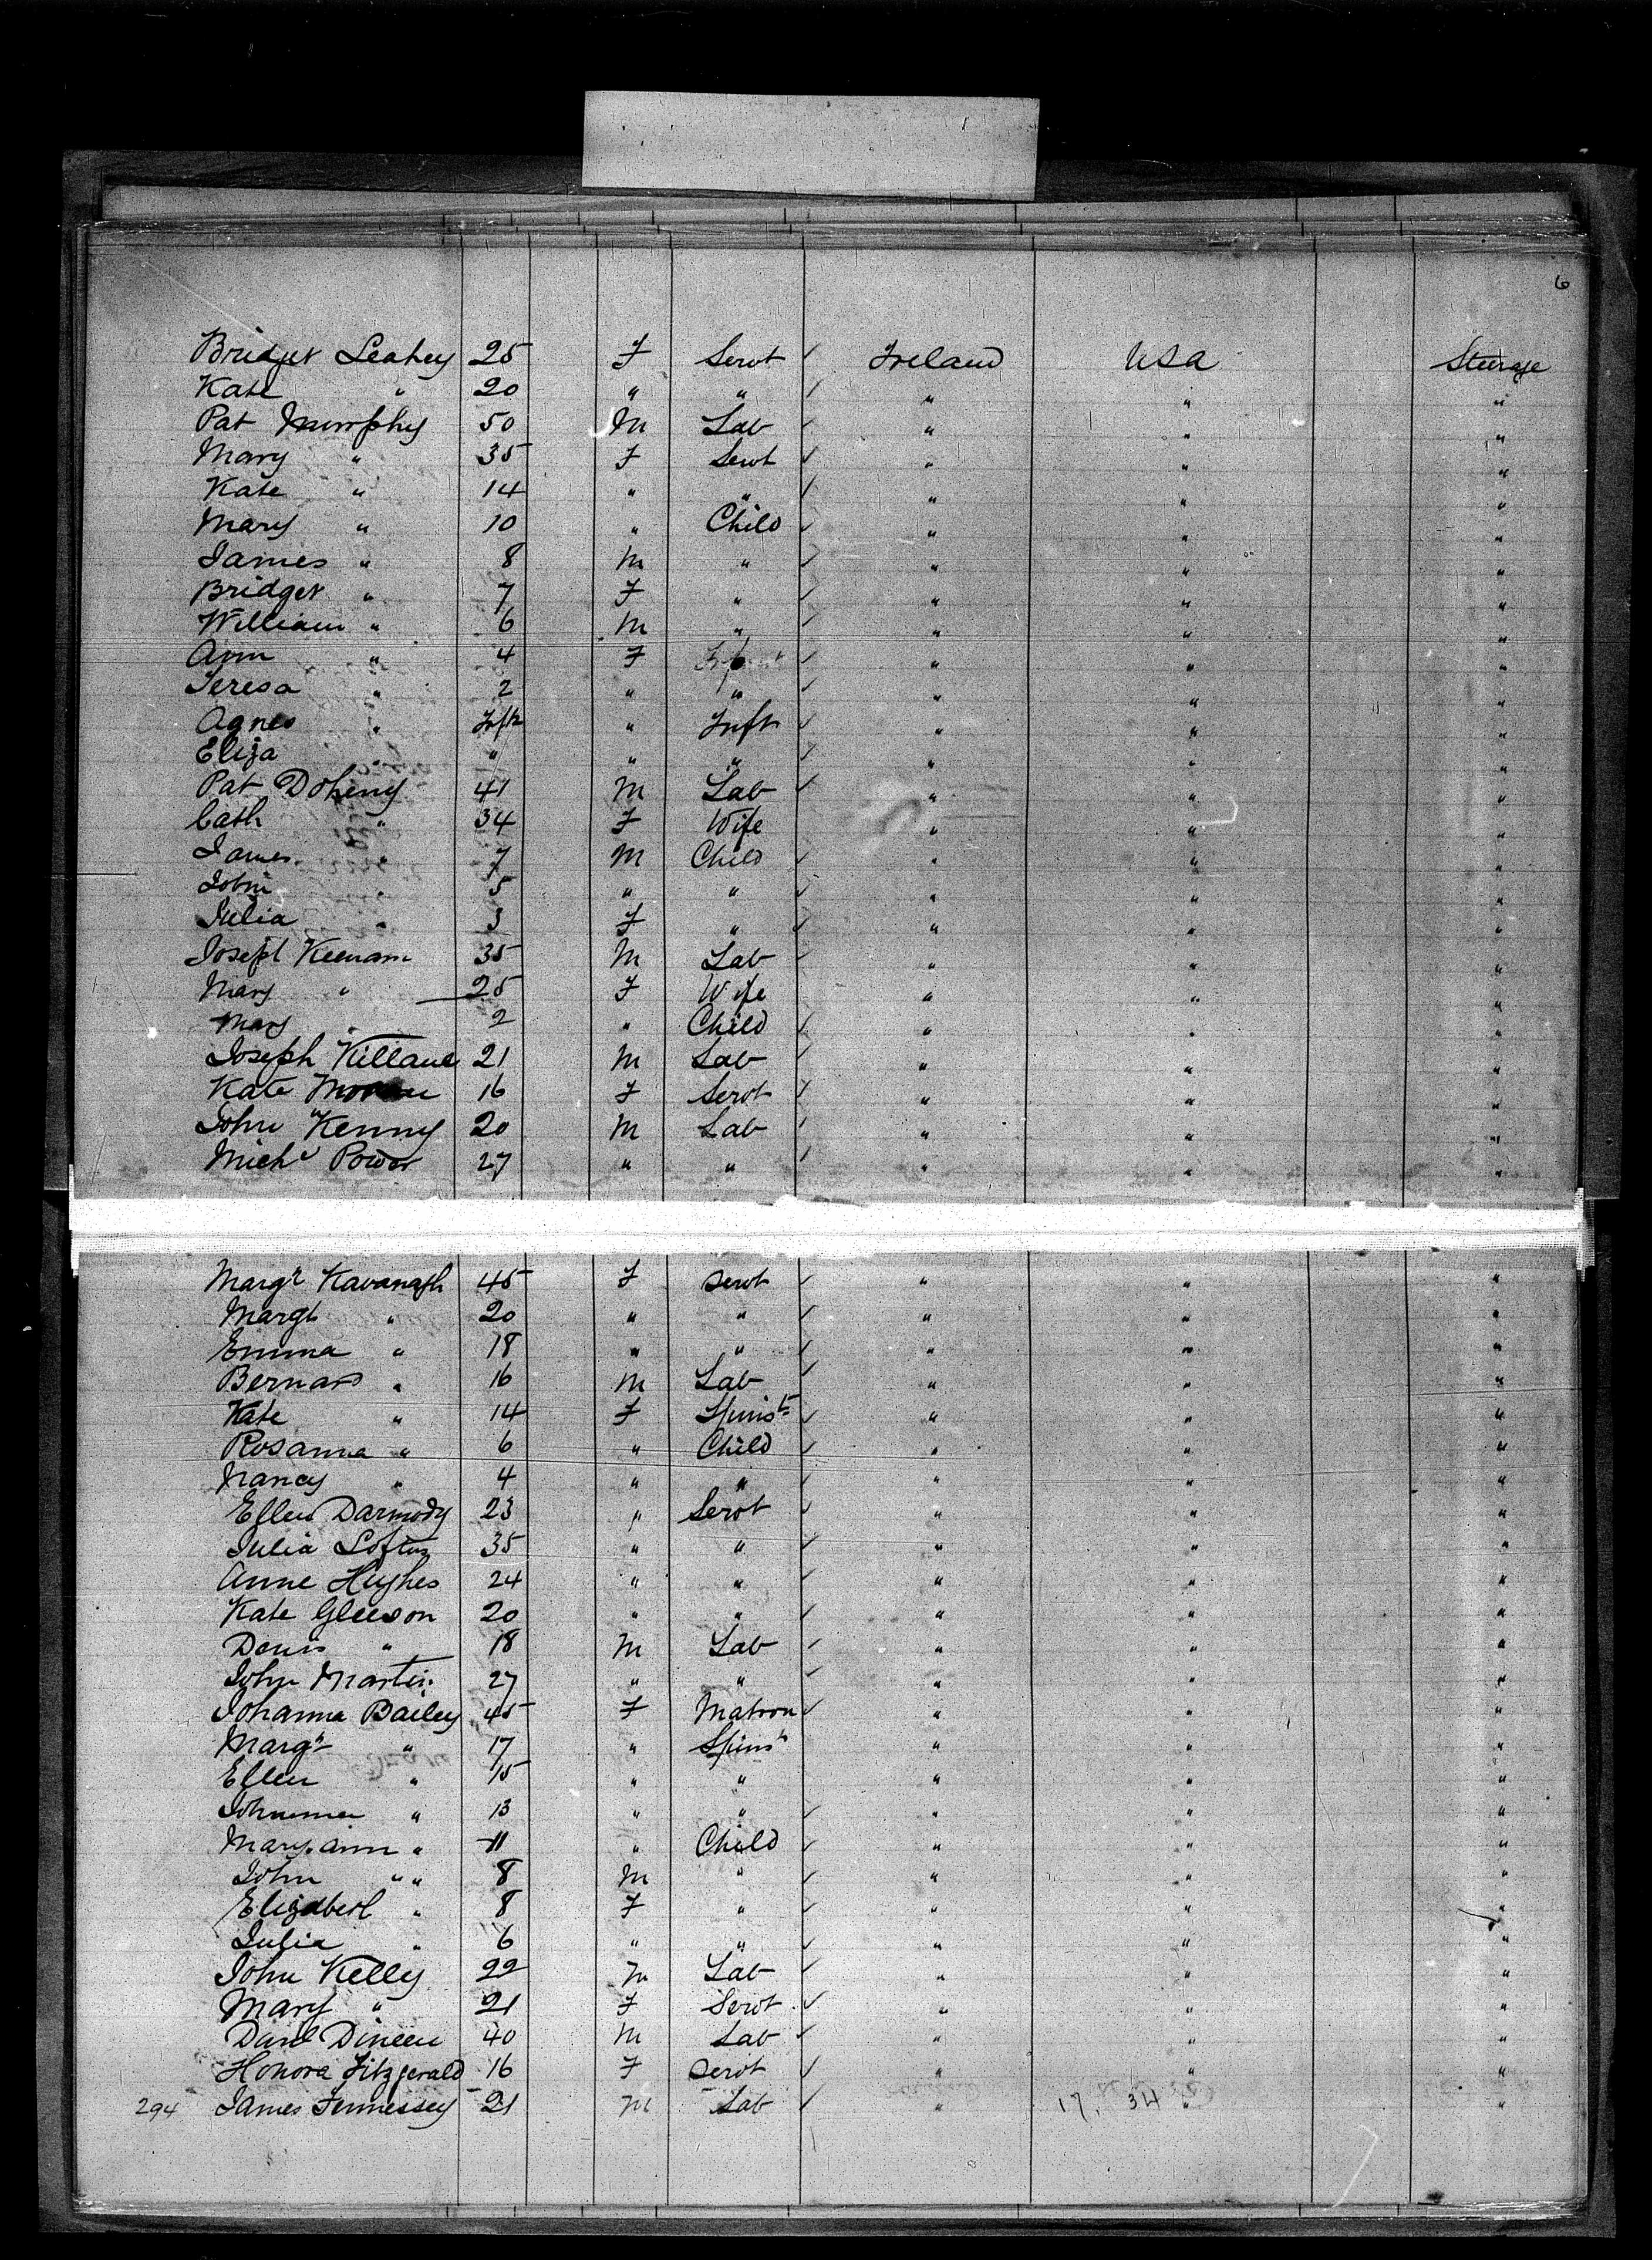 6
Bridget Leahey 25 F Servt ✓ Ireland USA Steerage
Kate " 20 " " ✓ " " "
Pat Murphy 50 M Lab ✓ " " "
Mary " 35 F Servt ✓ " " "
Kate " 14 " " ✓ " " "
Mary " 10 " Child ✓ " " "
James " 8 M " ✓ " " "
Bridget " 7 F " ✓ " " "
William " 6 M " ✓ " " "
Ann " 4 F ✓ " " "
Teresa " 2 " " ✓ " " "
Agnes " Inft " Inft ✓ " " "
Eliza " " " " ✓ " " "
Pat Doheny 41 M Lab ✓ " " "
Cath " 34 F Wife " " "
James " 7 M Child ✓ " " "
John " 5 " " ✓ " " "
Julia " 3 F " ✓ " " "
Joseph Keenam 35 M Lab ✓ " " "
Mary " 25 F Wife " " "
Mary " 2 " Child ✓ " " "
Joseph Killane 21 M Lab ✓ " " "
Kate 16 F Servt ✓ " " "
John Kenny 20 M Lab ✓ " " "
Michl Power 27 " " ✓ " " "
Margt Kavanagh 45 F Servt ✓ " " "
Margt " 20 " " ✓ " " "
Emma " 18 " " ✓ " " "
Bernard " 16 M Lab ✓ " " "
Kate " 14 F Spinstr ✓ " " "
Rosanna " 6 " Child ✓ " " "
Nancy " 4 " " ✓ " " "
Ellen Darmody 23 " Servt ✓ " " "
Julia Loftus 35 " " ✓ " " "
Anne Hughes 24 " " ✓ " " "
Kate Gleeson 20 " " ✓ " " "
Denis " 18 M Lab ✓ " " "
John Martin 27 " " ✓ " " "
Johanna Bailey 45 F Matron ✓ " " "
Margt " 17 " Spinstr " " "
Ellen " 15 " " " " "
Johanna " 13 " " ✓ " " "
Mary Ann " 11 " Child ✓ " " "
John " " 8 M " ✓ " " "
Elizabeth " 8 F " ✓ " " "
Julia " 6 " " ✓ " " "
John Kelly 22 M Lab ✓ " " "
Mary " 21 F Servt ✓ " " "
Danl Dineen 40 M Lab ✓ " " "
Honora Fitzgerald 16 F Servt ✓ " " "
294 James Fennessey 21 M Lab ✓ " 17. 34 " "